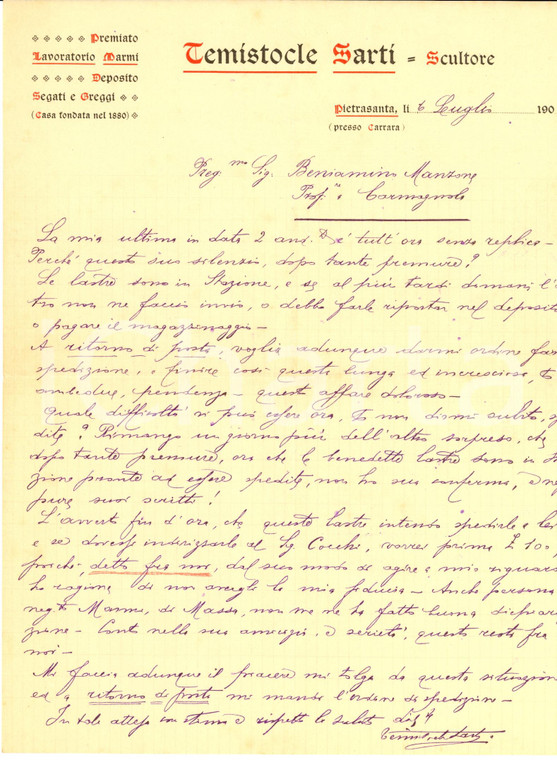 Premiato
Lavoratorio Marmi
Deposito
Segati e Greggi
(Casa fondata nel 1880)
Temistocle Sarti = Scultore
Pietrasanta, li 6 Luglio 190
(presso Carrara)
Preg.mo Sig. Beniamino Manzone
Prof.e Carmagnola
La mia ultima in data 2 and. è tutt'ora senza replica -
Perchè questo suo silenzio, dopo tante premure?
Le lastre sono in Stazione, e se al più tardi domani l'
tro non ne faccio invio, o debbo farle riportar nel deposito
o pagare il magazzinaggio -
A ritorno di posta, voglia adunque darmi ordine far
spedizione, e finire così questa lunga ed incresciosa,
ambedue, pendenza - questo affare doloroso -
Quale difficoltà vi può essere ora, non dirmi subito,
dite? Rimango un giorno più dell'altro sorpreso, che
dopo tante premure, ora che le benedette lastre sono in
zione pronte ad essere spedite, non ho sua conferma, e
pure suoi scritti!
L'averto fin d'ora, che queste lastre intendo spedirle a lei
e se dovessi indirizzarle al Sig Cocchi, vorrei prima £ 100,
poichè, detto fra noi, dal suo modo di agire a mio riguar
ho ragione di non avergli la mia fiducia - Anche persona
negt. Marmi, di Massa, non me ne ha fatto buona dichiar
zione - Conto nella sua amicizia, e serietà, questo resti fra
noi -
Mi faccia adunque il piacere mi tolga da questa situazion
ed a ritorno di posta mi mandi l'ordine di spedizione -
In tale attesa con stima e rispetto la saluto
Temistocle Sarti